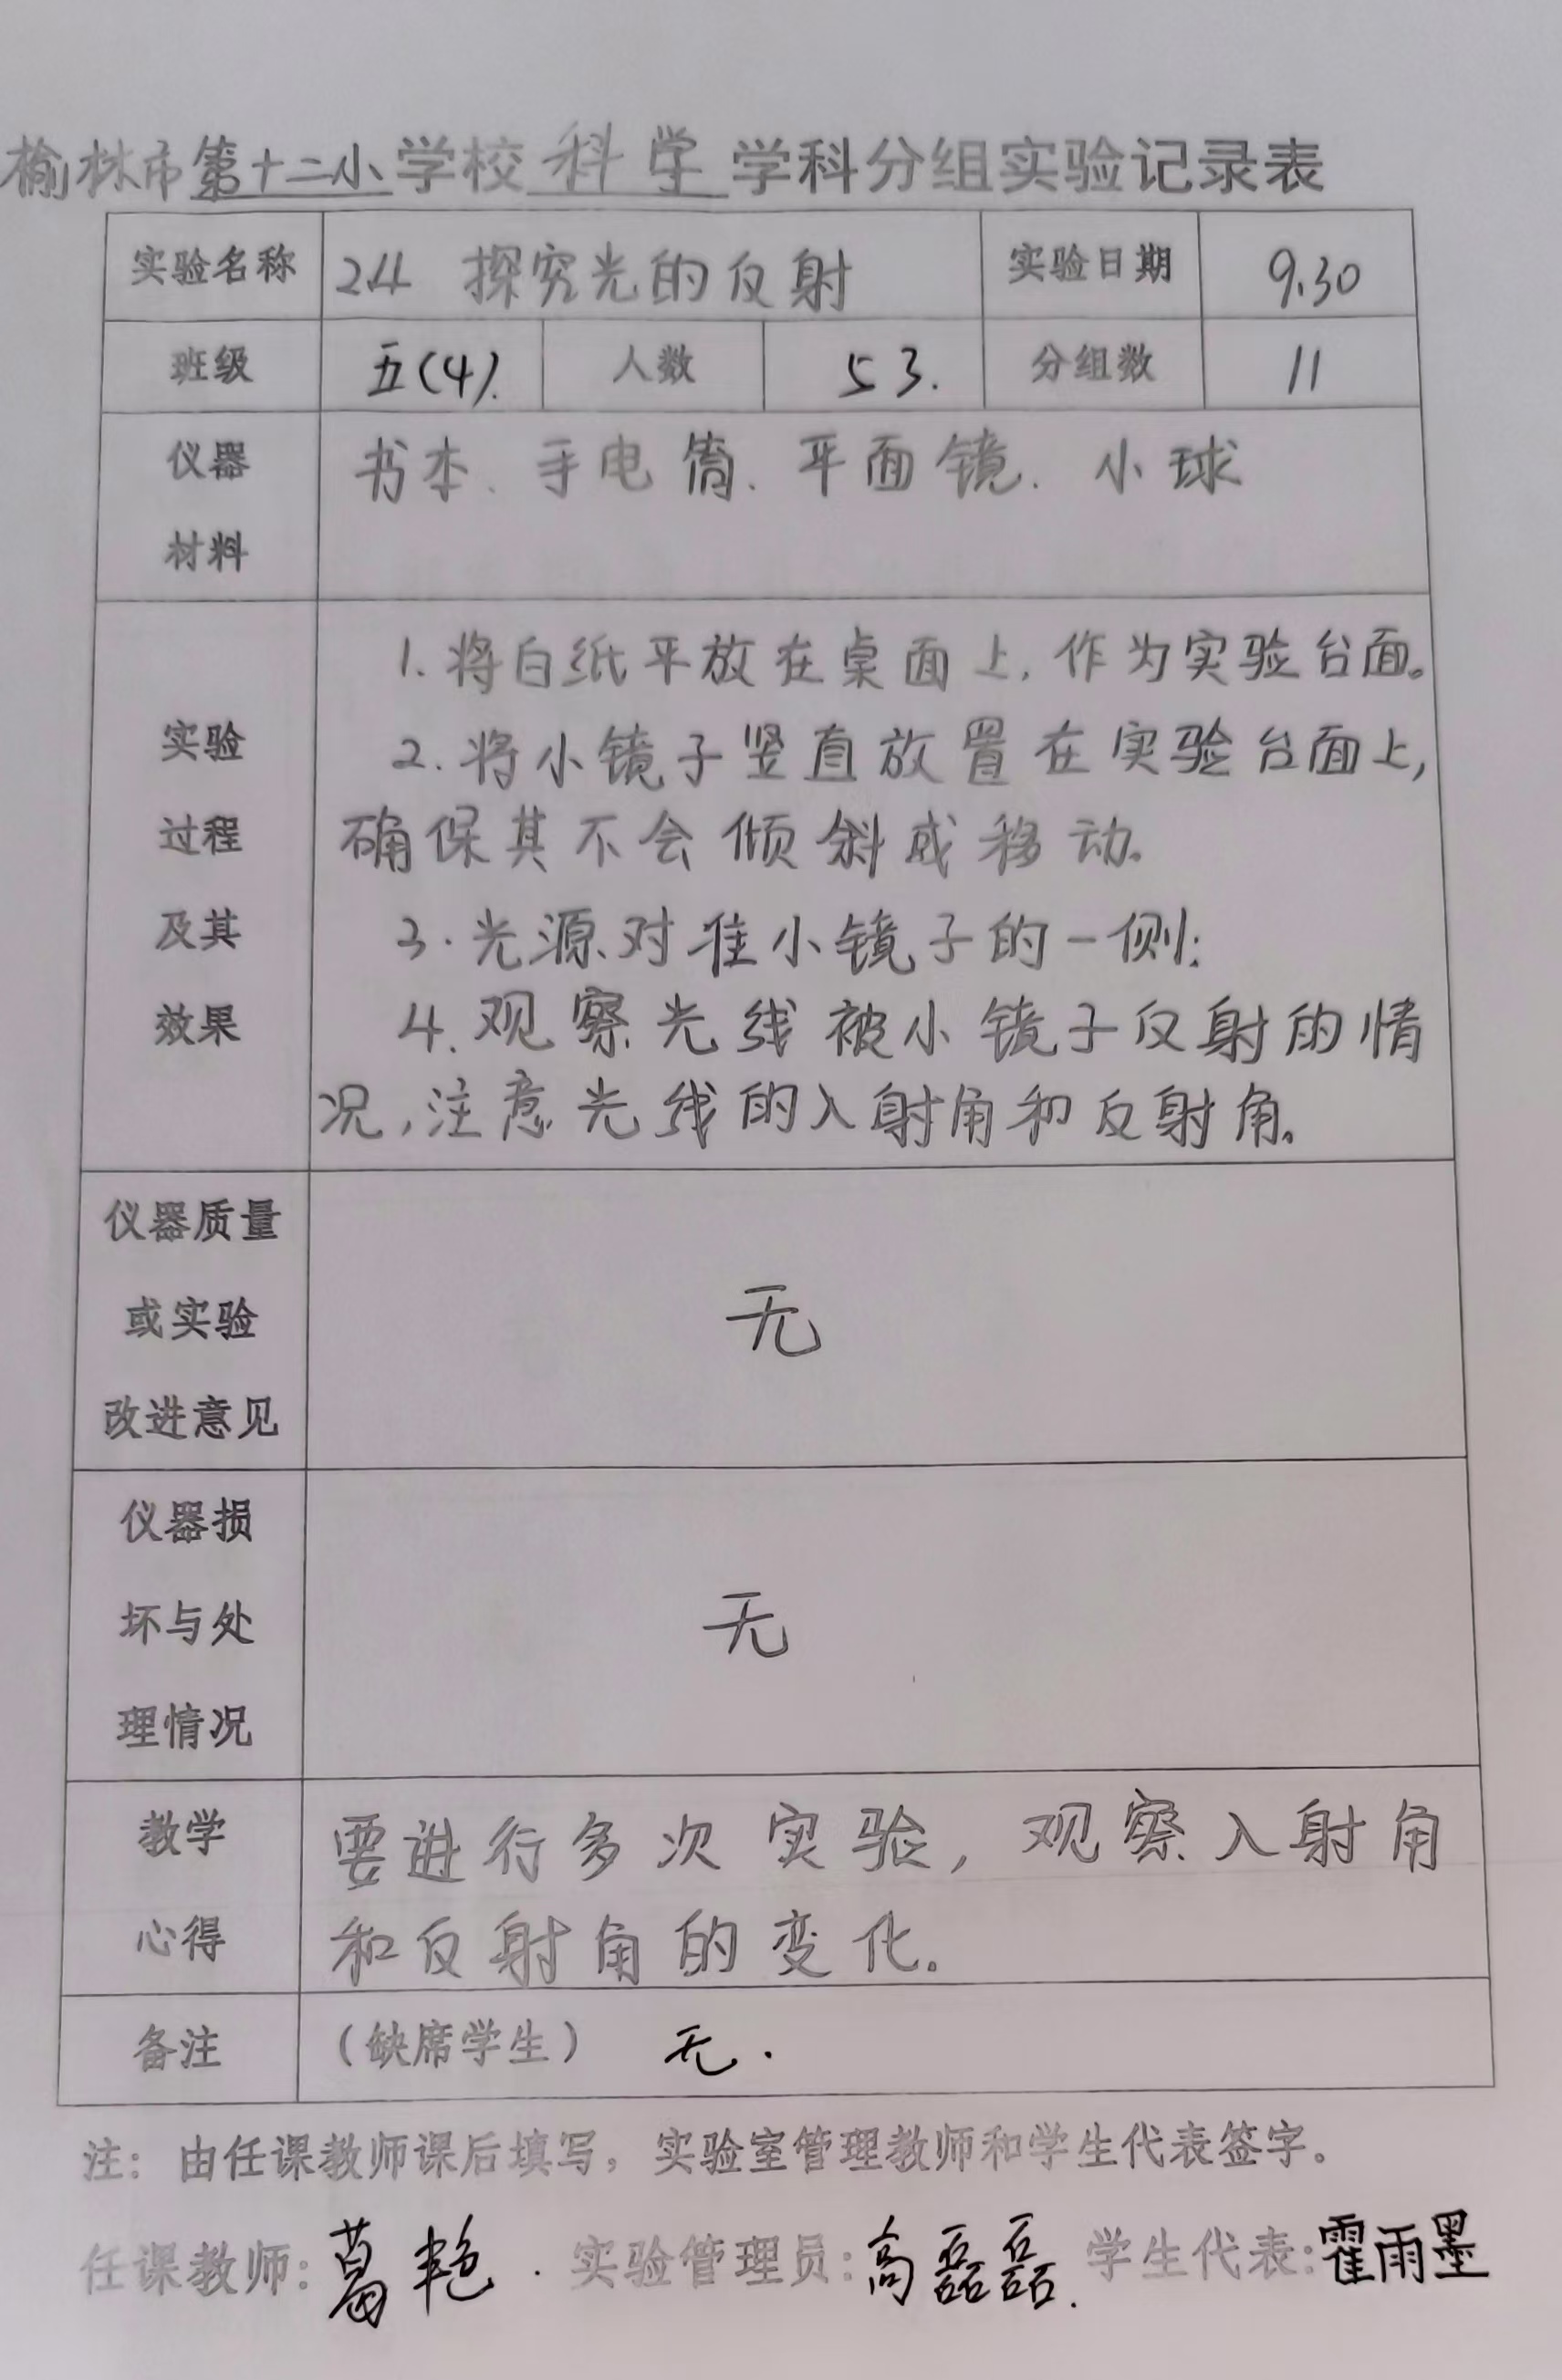 榆林市第十二小学校科学学科分组实验记录表
实验名称 2.4 探究光的反射 实验日期 9.30
班级 五(4). 人数 53. 分组数 11
仪器
材料
书本、手电筒、平面镜、小球
实验
过程
及其
效果
1.将白纸平放在桌面上,作为实验台面。
2.将小镜子竖直放置在实验台面上,
确保其不会倾斜或移动。
3.光源对准小镜子的一侧;
4.观察光线被小镜子反射的情
况,注意光线的入射角和反射角。
仪器质量
或实验
改进意见
无
仪器损
坏与处
理情况
无
教学
心得
要进行多次实验,观察入射角
和反射角的变化。
备注 (缺席学生) 无.
注:由任课教师课后填写,实验室管理教师和学生代表签字。
任课教师:葛艳. 实验管理员:高磊磊. 学生代表:霍雨墨